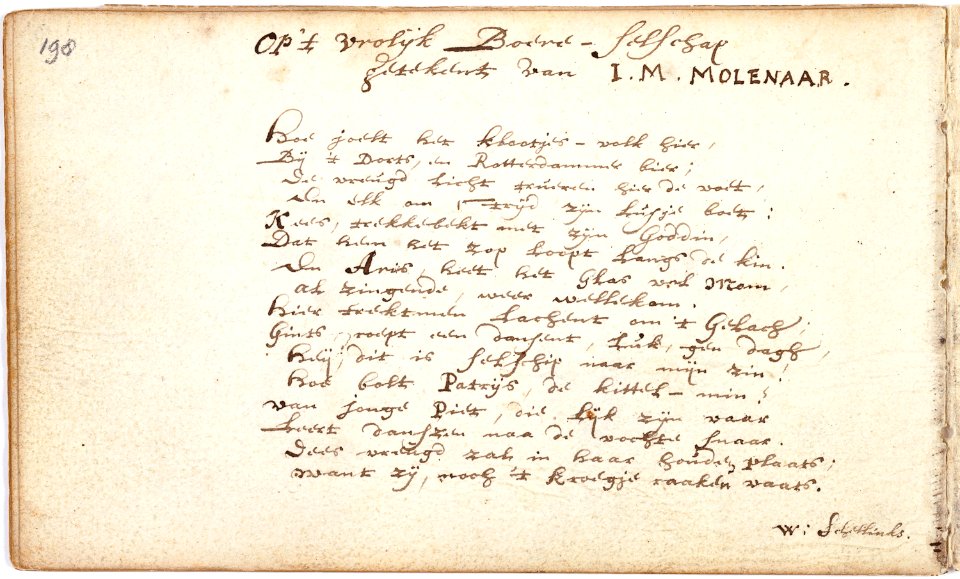 190
OP't vrolijk Boere-selschap
getekent van I. M. MOLENAAR.
Hoe joelt het klootjes-volk hier,
Bij 't Dorts, en Rotterdammer bier;
De vreugd licht trueren hier de voet,
En elk om strijd zijn lusje boet:
Kees, trekkebekt met zijn Goddin,
Dat hem het zop loopt langs de kin.
En Aris, heet het Glas vol Mom,
al zingende, weer wellekom.
Hier trektmen lachent om 't Gelach;
Gints, roept een dansent, luk, gen dagh,
Heij, dit is selschip naar mijn zin!
Hoe bolt Patrijs, de kittel-min!
van jonge Piet, die lijk zijn vaar
Leert danszen naa de vochte snaar.
Dees vreugd zal in haar houden plaats;
want zij, noch 't kroegje raaken vaars.
W: Schellinks.